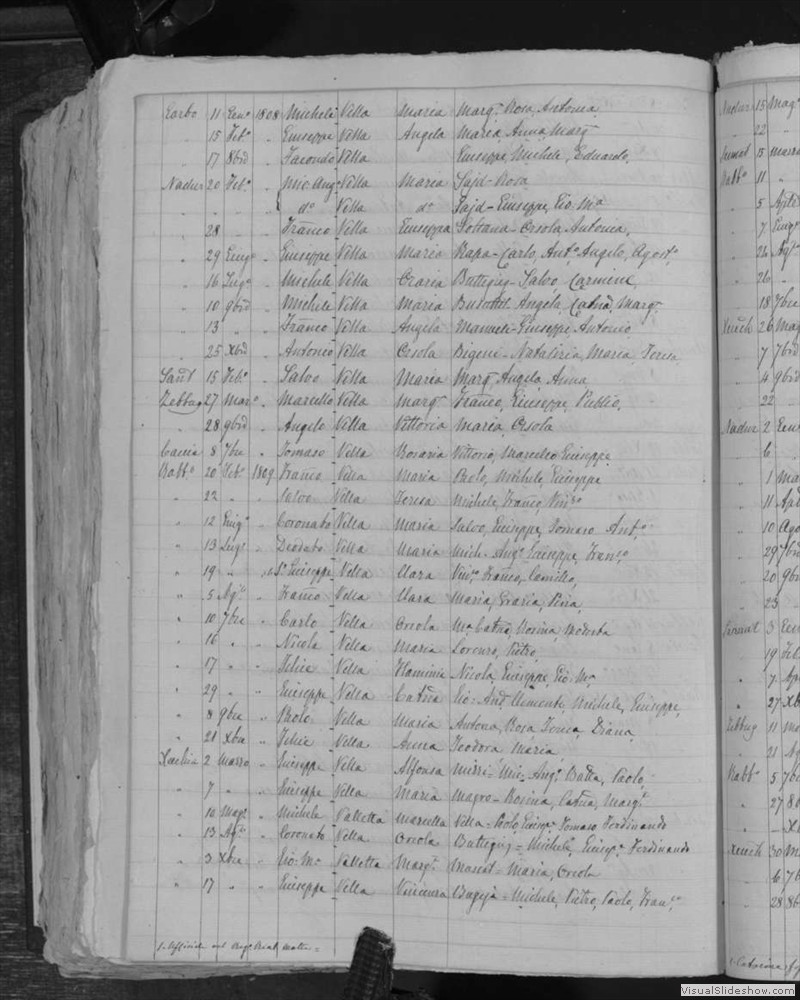 Garbo 11 Genº 1808 Michele Vella Maria Margª Rosa, Antonia
" 15 Febº " Giuseppe Vella Angela Maria, Anna, Margª
" 17 8bre " Facondo Vella Giuseppe, Michele, Eduardo,
Nadur 20 Febº " Mic. Ang. Vella Maria Sajd-Rosa
" " " dº Vella dº Sajd-Giuseppe, Gio. Mª
" 28 " " Franco Vella Giuseppa Soltana-Orsola Antonia,
" 29 Giugº " Giuseppe Vella Maria Rapa-Carlo, Antº Angelo, Agostº
" 16 Lugº " Michele Vella Grazia Buttigieg-Salvo, Carmine,
" 10 9bre " Michele Vella Maria Angela, Catna, Margª
" 13 " " Franco Vella Angela Giuseppe Antonio
" 25 Xbre " Antonio Vella Orsola Bigeni-Natalizia, Maria, Teresa
Sant 15 Febº " Salvo Vella Maria Margª Angela, Anna,
Zebbug 27 Marº " Marcello Vella Margª Franco, Giuseppe, Publio,
" 28 9bre " Angelo Vella Vittoria Maria, Orsola
Caccia 8 7bre " Tomaso Vella Rosaria Vittorio, Marcello Giuseppe
Rabbº 20 Febº 1809 Franco Vella Maria Paolo, Michele, Giuseppe
" 22 " " Salvo Vella Teresa Michele, Franco, Vinº
" 12 Giugº " Coronato Vella Maria Salvo, Giuseppe, Tomaso Antº
" 13 Lugº " Deodato Vella Maria Mich. Angº Giuseppe, Franº
" 19 " " 1. Sr Giuseppe Vella Clara Vinº Franco, Camillo,
" 5 Agº " Franco Vella Clara Maria, Grazia, Pina,
" 10 7bre " Carlo Vella Orsola Mª Catna, Rosina Modesta
" 16 " " Nicola Vella Maria Lorenzo, Pietro,
" 17 " " Felice Vella Flaminia Nicola, Giuseppe, Gio: Mª
" 29 " " Giuseppe Vella Catna Gio: Andª Clemente, Michele, Giuseppe,
" 8 9bre " Paolo Vella Maria Antona, Rosa Teresa, Diana,
" 21 Xbre " Felice Vella Anna Teodora Maria,
Xaghra 2 Marzo " Giuseppe Vella Alfonsa Mizzi-Mic. Angº Batta, Paolo,
" 7 " " Giuseppe Vella Maria Magro-Rosina, Catna, Margª
" 10 Magº " Michele Valletta Marcella Vella-Paolo, Giuseº Tomaso Ferdinando
" 13 Agº " Coronato Vella Orsola Buttigieg-Michele, Giuseº Ferdinando
" 3 Xbre " Gio: Mª Valletta Margª Maria, Orsola
" 17 " " Giuseppe Vella Vincenza Bugeja-Michele, Pietro, Paolo, Franº
Nadur 15 Magº
" 22 "
" 15 Marzo
Rabbº 11 "
" 5
" 7 Giugº
" 26 Agº
" 26 "
" 18 7bre
Xeuch 26 Mag
" 7 7bre
" 4 9bre
" 22 "
Nadur 2 Gen
" 6 "
" 1 Ma
" 11 Ap
" 10 Ago
" 29 7br
" 20 9br
" 23 "
3 Gen
" 19 Feb
" 7 Ap
" 27 Xb
Zebbug 11 Ma
" 21 Ag
Rabbº 5 7b
" 27 8b
" Xb
Xeuch 30 M
" 6 7b
" 28 8b
VisualSlideshow.com